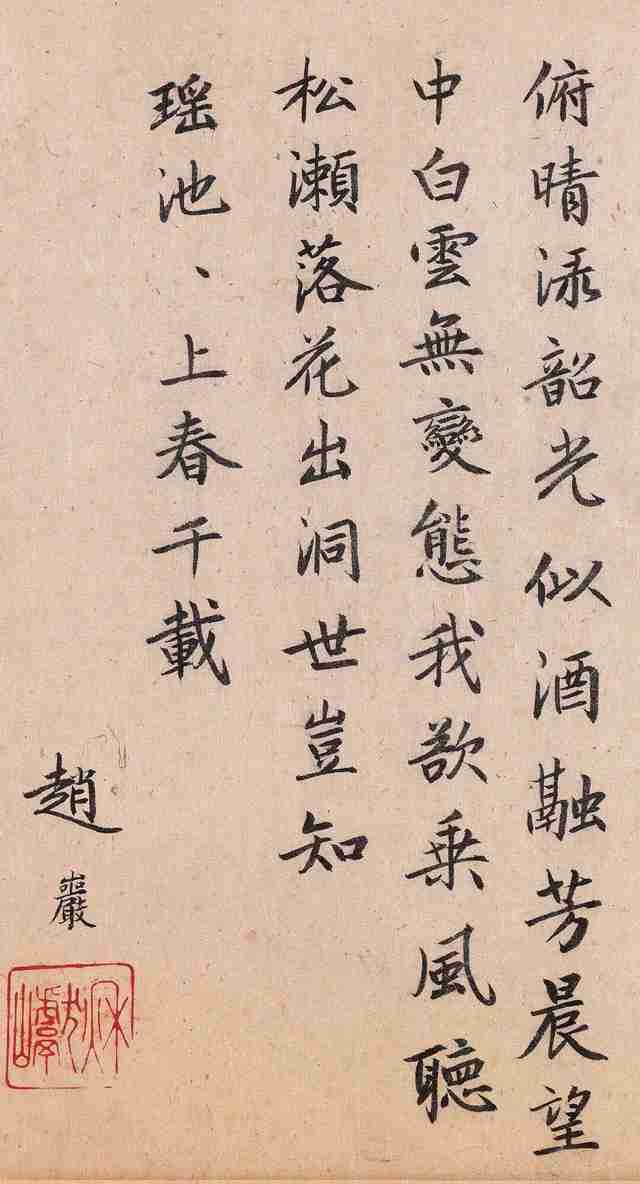 俯晴渌韶光似酒融芳晨望
中白雲無變態我欲乗風聴
松瀨落花出洞世豈知
瑶池、上春千載
趙巖